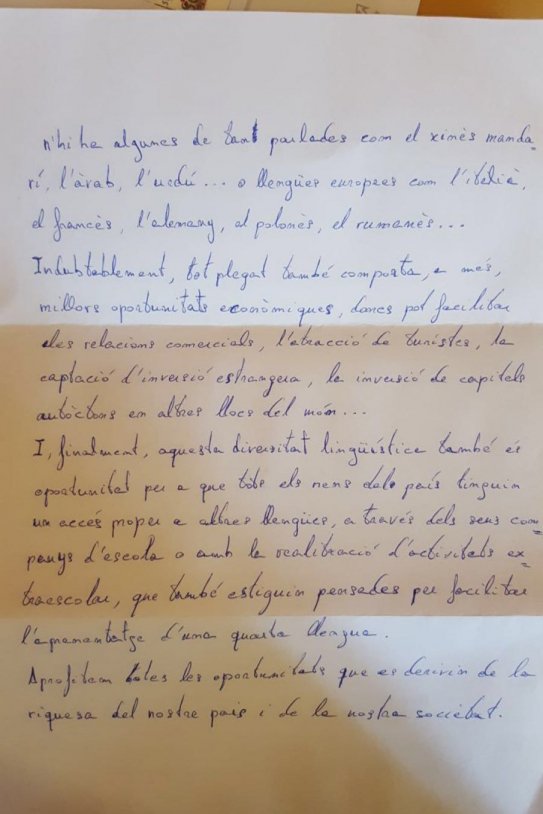 n'hi ha algunes de tant parlades com el xinès manda-
rí, l'àrab, l'urdú... o llengües europees com l'italià,
el francès, l'alemany, el polonès, el rumanès...
Indubtablement, tot plegat també comporta, a més,
millors oportunitats econòmiques, doncs pot facilitar
les relacions comercials, l'atracció de turistes, la
captació d'inversió estrangera, la inversió de capitals
autòctons en altres llocs del món...
I, finalment, aquesta diversitat lingüística també és
oportunitat per a que tots els nens del país tinguin
un accés proper a altres llengües, a través dels seus com-
panys d'escola o amb la realització d'activitats ex-
traescolar, que també estiguin pensades per facilitar
l'aprenentatge d'una quarta llengua.
Aprofitem totes les oportunitats que es derivin de la
riquesa del nostre país i de la nostra societat.